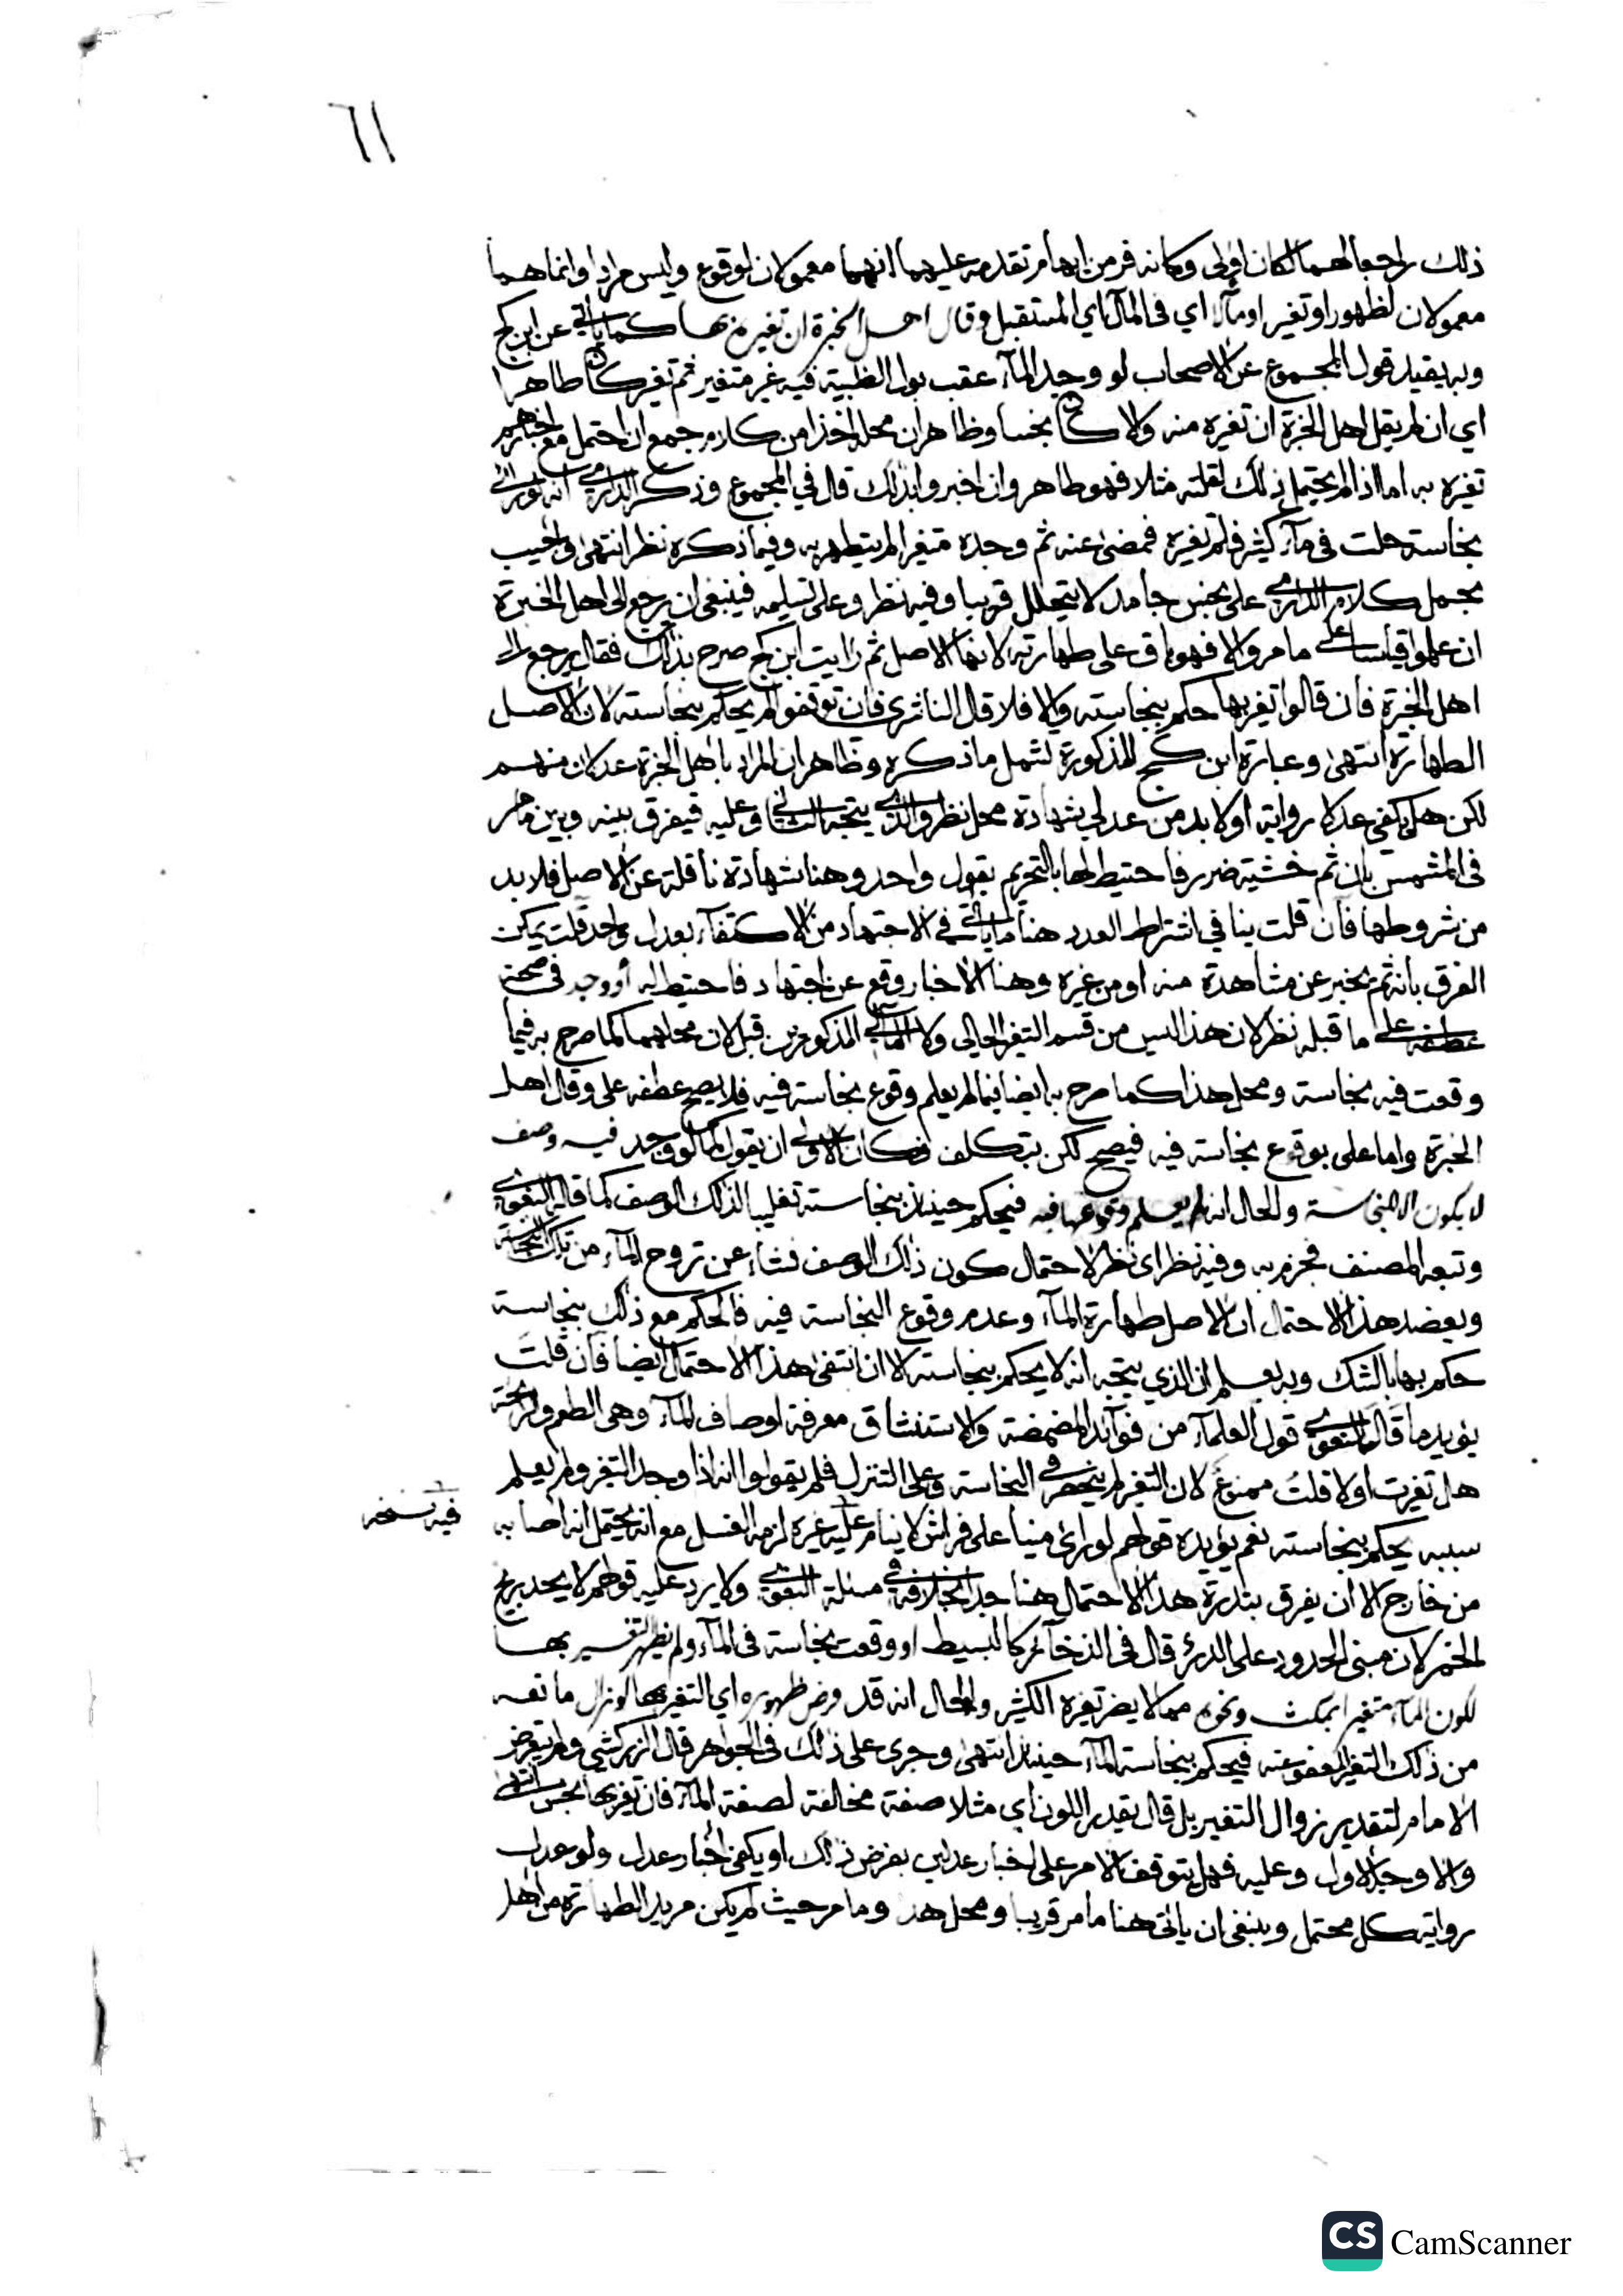 ٦١
ذلك راجعا لهما لكان اولى وكانه فر من ايهام تقدمه عليهما انهما معمولان لوقوع وليس مرادا وانما هما
معمولان لظهور او تغير او مآلا اي في المآل اي المستقبل وقال اهل الخبرة ان تغيره بها كما ياتي عن ابن كج
وبه يقيد قول المجموع عن الاصحاب لو وجد المآء عقب بول الظبية فيه غير متغير ثم تغير كان طاهرا
اي ان لم يقل اهل الخبرة ان تغيره منه والا كان نجسا وظاهر ان محله اخذا من كلام جمع ان احتمل مع اخبارهم
تغيره به اما اذا لم يحتمل ذلك لقلته مثلا فهو طاهر وان اخبروا بذلك قال في المجموع وذكر الدارمي انه لو راى
نجاسة حلت في مآء كثير فلم تغيره فمضى عنه ثم وجده متغيرا لم يتطهر به وفيما ذكره نظر انتهى واجيب
بحمل كلام الدارمي على نجس جامد لا يتحلل قريبا وفيه نظر وعلى تسليمه فينبغي ان يرجع الى اهل الخبرة
ان علموا قياسا على ما مر والا فهو باق على طهارته لانها الاصل ثم رايت ابن كج صرح بذلك فقال يرجع الى
اهل الخبرة فان قالوا تغير بها حكم بنجاسته والا فلا قال الناشري فان توقفوا لم يحكم بنجاسته لان الاصل
الطهارة انتهى وعبارة ابن كج المذكورة تشمل ما ذكره وظاهر ان المراد باهل الخبرة عدلان منهم
لكن هل يكفي عدلا رواية او لا بد من عدلي شهادة محل نظر والذي يتجه الثاني وعليه فيفرق بينه وبين ما مر
في المشمس بان ثم خشية ضرر فاحتيط لها بالتحريم بقول واحد وهنا شهادة ناقلة عن الاصل فلا بد
من شروطها فان قلت ينافي اشتراط العدد هنا ما ياتي في الاجتهاد من الاكتفآء بعدل واحد قلت يمكن
الفرق بانه ثم يخبر عن مشاهدة منه او من غيره وهنا الاخبار وقع عن اجتهاد فاحتيط له أو وجد في صحة
عطفه على ما قبله نظر لان هذا ليس من قسم التغير الحالي ولا المآلي المذكورين قبل لان محلهما كما صرح به فيما
وقعت فيه نجاسة ومحل هذا كما صرح به ايضا فيما لم يعلم وقوع نجاسة فيه فلا يصح عطفه على وقال اهل
الخبرة واما على بوقوع نجاسة فيه فيصح لكن بتكلف فكان الاولى ان يقول كما لو وجد فيه وصف
لا يكون الا لنجاسة والحال انه لم يعلم وقوعها فيه فيحكم حينئذ بنجاسته تغليبا لذلك الوصف كما قاله البغوي
وتبعه المصنف فجزم به وفيه نظر اي نظر لاحتمال كون ذلك الوصف نشاء عن تروح المآء من تلك النجاسة
ويعضد هذا الاحتمال ان الاصل طهارة المآء وعدم وقوع النجاسة فيه فالحكم مع ذلك بنجاسة
حكم بها بالشك وبه يعلم ان الذي يتجه انه لا يحكم بنجاسته الا ان انتفى هذا الاحتمال ايضا فان قلت
يؤيد ما قاله البغوي قول العلمآء من فوآئد المضمضة والاستنشاق معرفة اوصاف المآء وهي الطعم والرائحة
هل تغيرت او لا قلت ممنوع لان التغير لم ينحصر في النجاسة وعلى التنزل فلم يقولوا انه اذا وجد التغير ولم يعلم
سببه يحكم بنجاسته نعم يؤيده قولهم لو راى منيا على فراش لا ينام عليه غيره لزمه الغسل مع انه يحتمل انه اصابه
فيه نسخه
من خارج الا ان يفرق بندرة هذا الاحتمال هنا جدا بخلافه في مسئلة البغوي ولا يرد عليه قولهم لا يحد بريح
الخمر لان مبنى الحدود على الدرئ قال في الذخآئر كالبسيط او وقعت نجاسة في المآء ولم يظهر التغير بها
لكون المآء متغيرا بمكث ونحوه مما لا يضر تغيره الكثير والحال انه قد فرض ظهوره اي التغير بها لو زال ما نعه
من ذلك التغير المعفو عنه فيحكم بنجاسة المآء حينئذ انتهى وجرى على ذلك في الجواهر قال الزركشي ولم يتعرض
الامام لتقدير زوال التغير بل قال يقدر اللون اي مثلا صفة مخالفة لصفة المآء فان تغير بها نجس انتهى
والاوجه الاول وعليه فهل يتوقف الامر على اخبار عدلين بفرض ذلك او يكفي اخبار عدل ولو عدل
رواية كل محتمل وينبغي ان ياتي هنا ما مر قريبا ومحل هذا وما مر حيث لم يكن مريد الطهارة من اهل
CS CamScanner